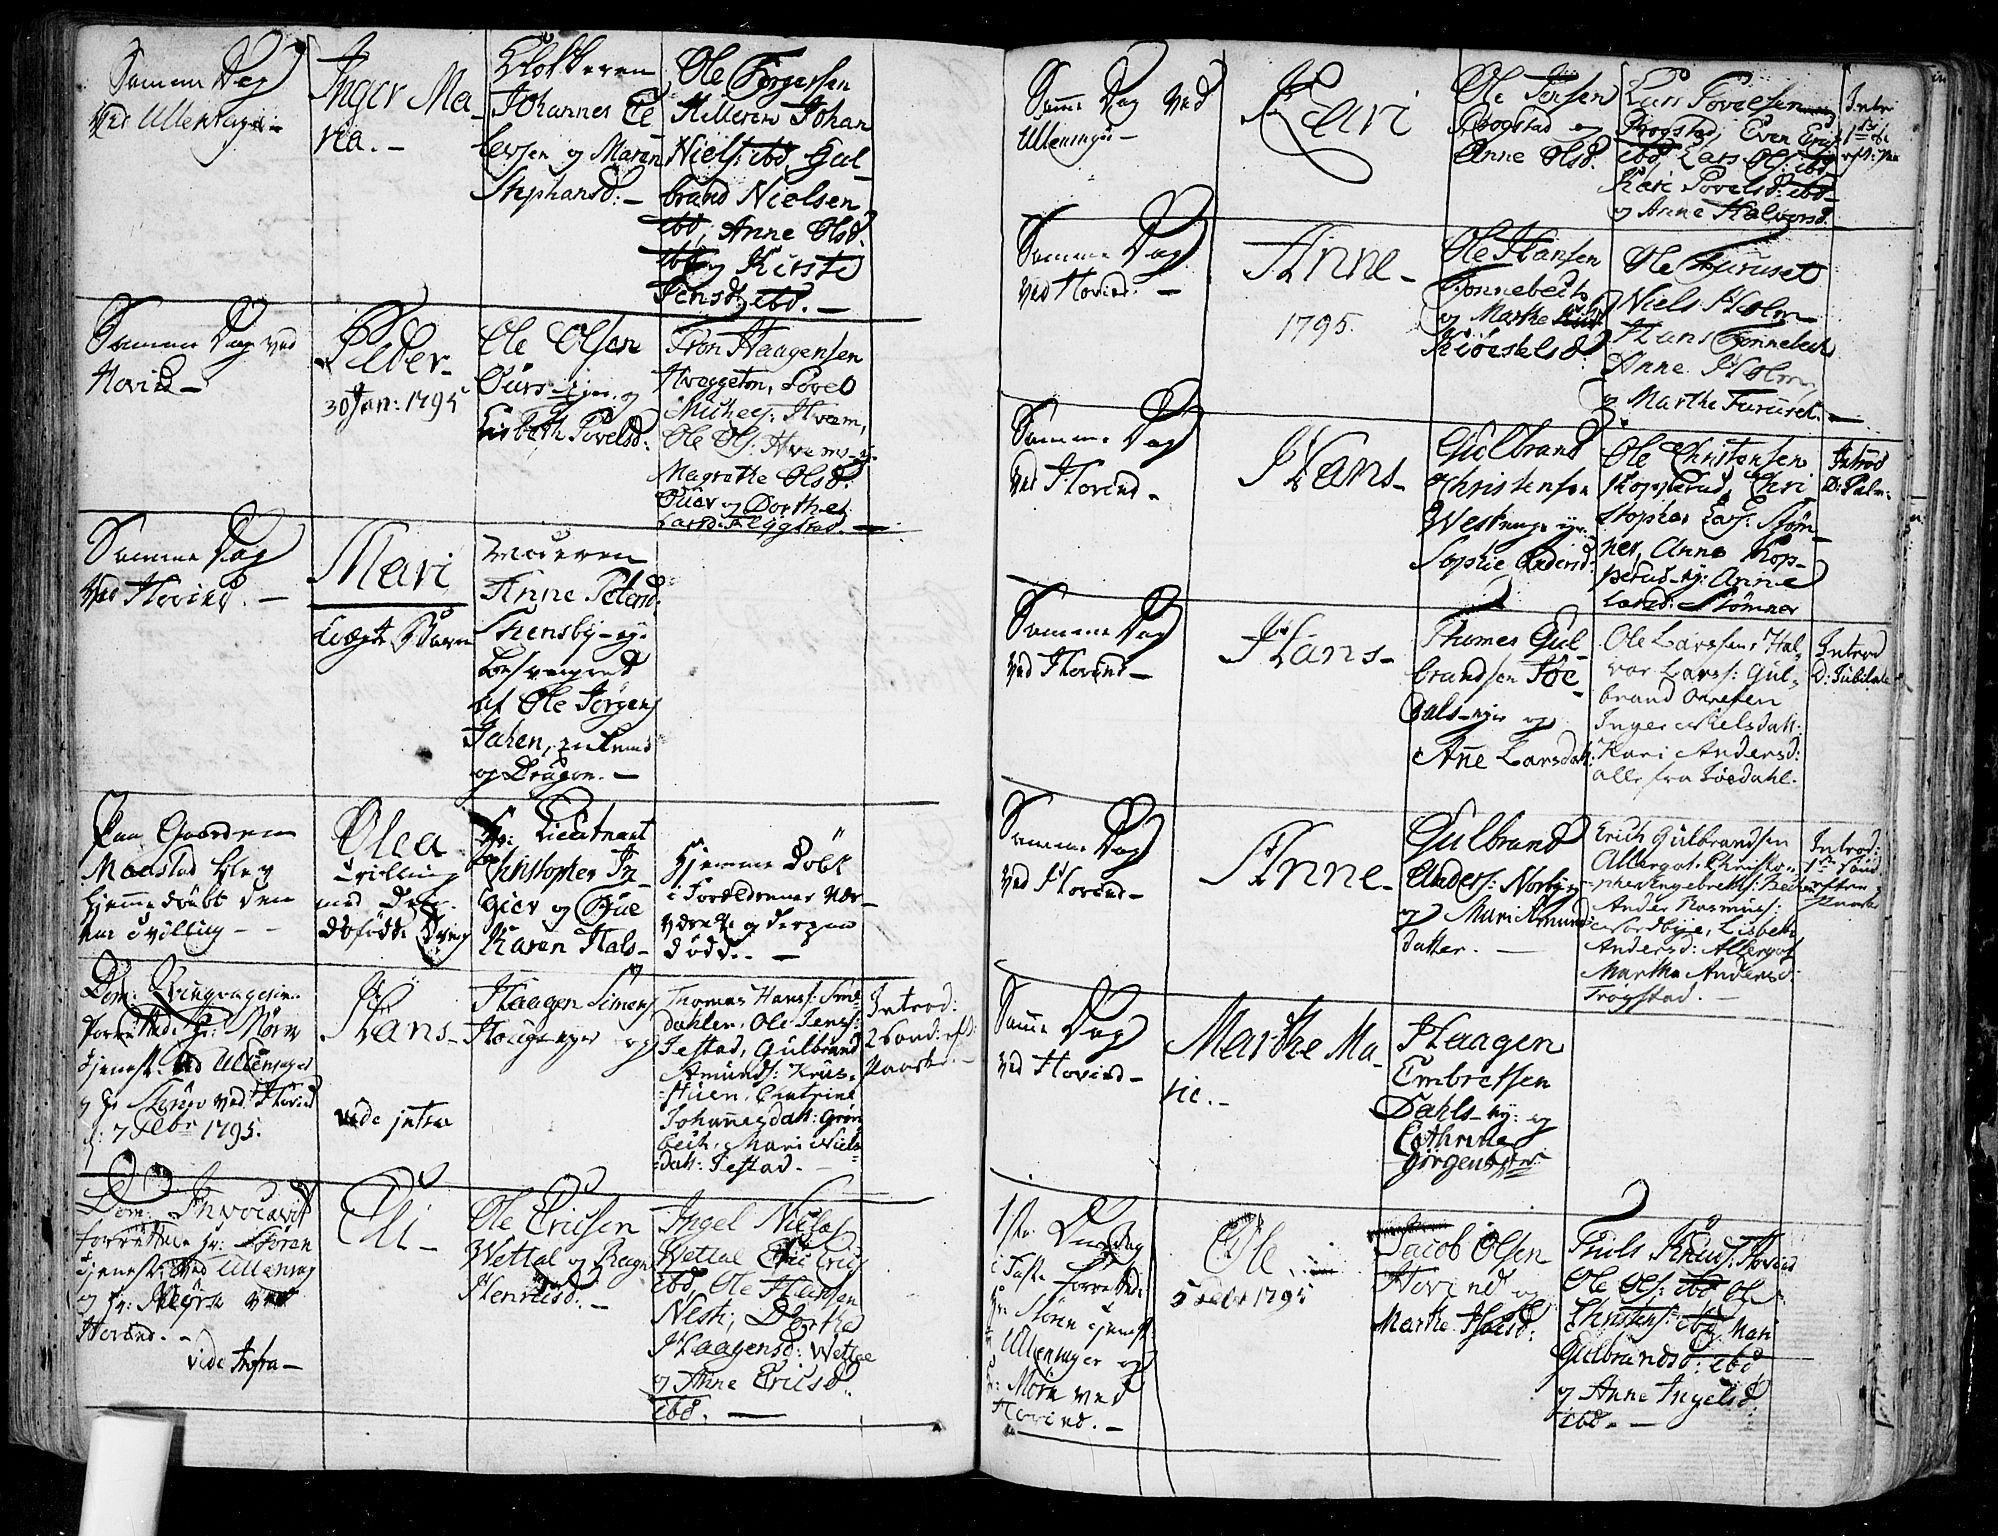 Samme Dag
ved Ullensager
Inger Ma-
ria. -
Klokkeren
Johannes Pe
dersen og Maren
Stephansd: -
Ole Jørgensen
Hilleren Johan
Niels: ibd, Gul-
brand Nielsen
ibd, Anne Olsd:
ibd, og Kirsti
Jensd: ibd. -
Samme Dag ved
Hovind -
Peder -
30 Jan: 1795
Ole Olsen
og
Lisbeth Povelsd:
Tron Haagensen
Povel
Michels: Hvam,
Ole Ols: Hvams
Magrethe Olsd:
og Dorthe
Larsd: Algstad. -
Samme Dag
ved Hovind. -
Mari
Uægte Barn
Moderen
Anne Petersd:
Stensby-ey:
besvangred
af Ole Jørgens
Jahen, Enkemd
og Dragon. -
Paa Gaarden
Maastad blev
hjemmedøbt den
ene Tvilling - -
Olea
Tvilling
med
dødfødde Dreng
Hr: Lieutnant
Christopher In-
gier og Frue
Karen Hals -
Hjemme Døbt
i Forældrenes Nær-
værelse og derpaa
Død. -
Dom: Qvinqvagesim:
forrettede Hr: Mørch
Tjenest: ved Ullensager
og Hr Støren ved Hovind
d: 7 Febr 1795.
Hans -
vide infra
Haagen Simens
Houg-eyer og
Thomas Hanss: Sme-
dahlen, Ole Jenss:
Jestad, Gulbrand
Amunds: Krus-
Stuen, Cathrine
Johannesdatt: Grøn
bech, Mari Niels-
datt: Jestad. -
Introd:
2 Sond: eft:
Paaske. -
Dom: Invocavit
forrettede Hr: Støren
Tjenest: ved Ullensag
og Hr: Mørch ved
Hovind. -
vide Infra -
Eli -
Ole Ericsen
Wettal og Ragn
Henricsd: -
Ingel Niels:
Wettal Eric Erics
ibd, Ole Hansen
Nesti, Dorthe
Haagensd: Wettal
og Anne Ericsd:
ibd. -
Samme Dag ved
Ullensager -
Kari
Ole Jensen
Rogstad og
Anne Olsd:
Lars Povelsen
Rogstad, Even Erics
ibd, Lars Ols: ibd
Kari Povelsd: ibd
og Anne Halvorsd:
Intr:
1ste
eft: Paa
Samme Dag
ved Hovind: -
Anne -
1795.
Ole Hansen
Tonnebech
og Marthe
Kiøestelsd:
Ole Furuset
Niels Holm
Hans Tonnebech
Anne Holm
og Marthe Furuset. -
Samme Dag
ved Hovind -
Hans -
Gulbrand
Christensen
Westenge eyer
Sophie Andersd:
Ole Christensen
Kopperud, Chri
stopher Lars: Røm-
ner, Anne Kop-
perud-ey: Anne
Larsd: Rømner
Introd
D: Palm:
Samme Dag
ved Hovind -
Hans -
Thomes Gul-
brandsen Jøe-
dals-eyer og
Anne Larsdatt:
Ole Larssen, Hal-
vor Larss: Gul-
brand Arnesen
Inger Nielsdatt:
Kari Andersd:
alle fra Jøedahl:
Introd
D: Jubilate
Samme Dag
ved Hovind -
Anne -
Gulbrand
Anders: Norby
og Mari Amunds
datter. -
Erich Gulbrandsen
Allergot: Christo-
pher Engebrets: Beche
Ander Rasmus:
Nordbye, Lisbeth
Andersd: Allergot
Marthe Andersd:
Trogstad. -
Introd:
1ste Sond
efter
Paaske
Samme Dag
ved Hovind -
Marthe Ma-
rie. -
Haagen
Embretsen
Dahls-ey: og
Cathrine
Jørgensdtr:
1ste Onsdag
i Faste forretted:
Hr: Støren Tjenest:
Ullensager og
Hr: Mørch ved
Hovind. -
Ole
5 Febr 1795
Jacob Olsen
Hovind og
Marthe
Truls Knuds: Hovind
Ole Ols: ibd Ole
Christens: ibd, Mari
Gulbrandsd: ibd
og Anne Ingelsd:
ibd. -